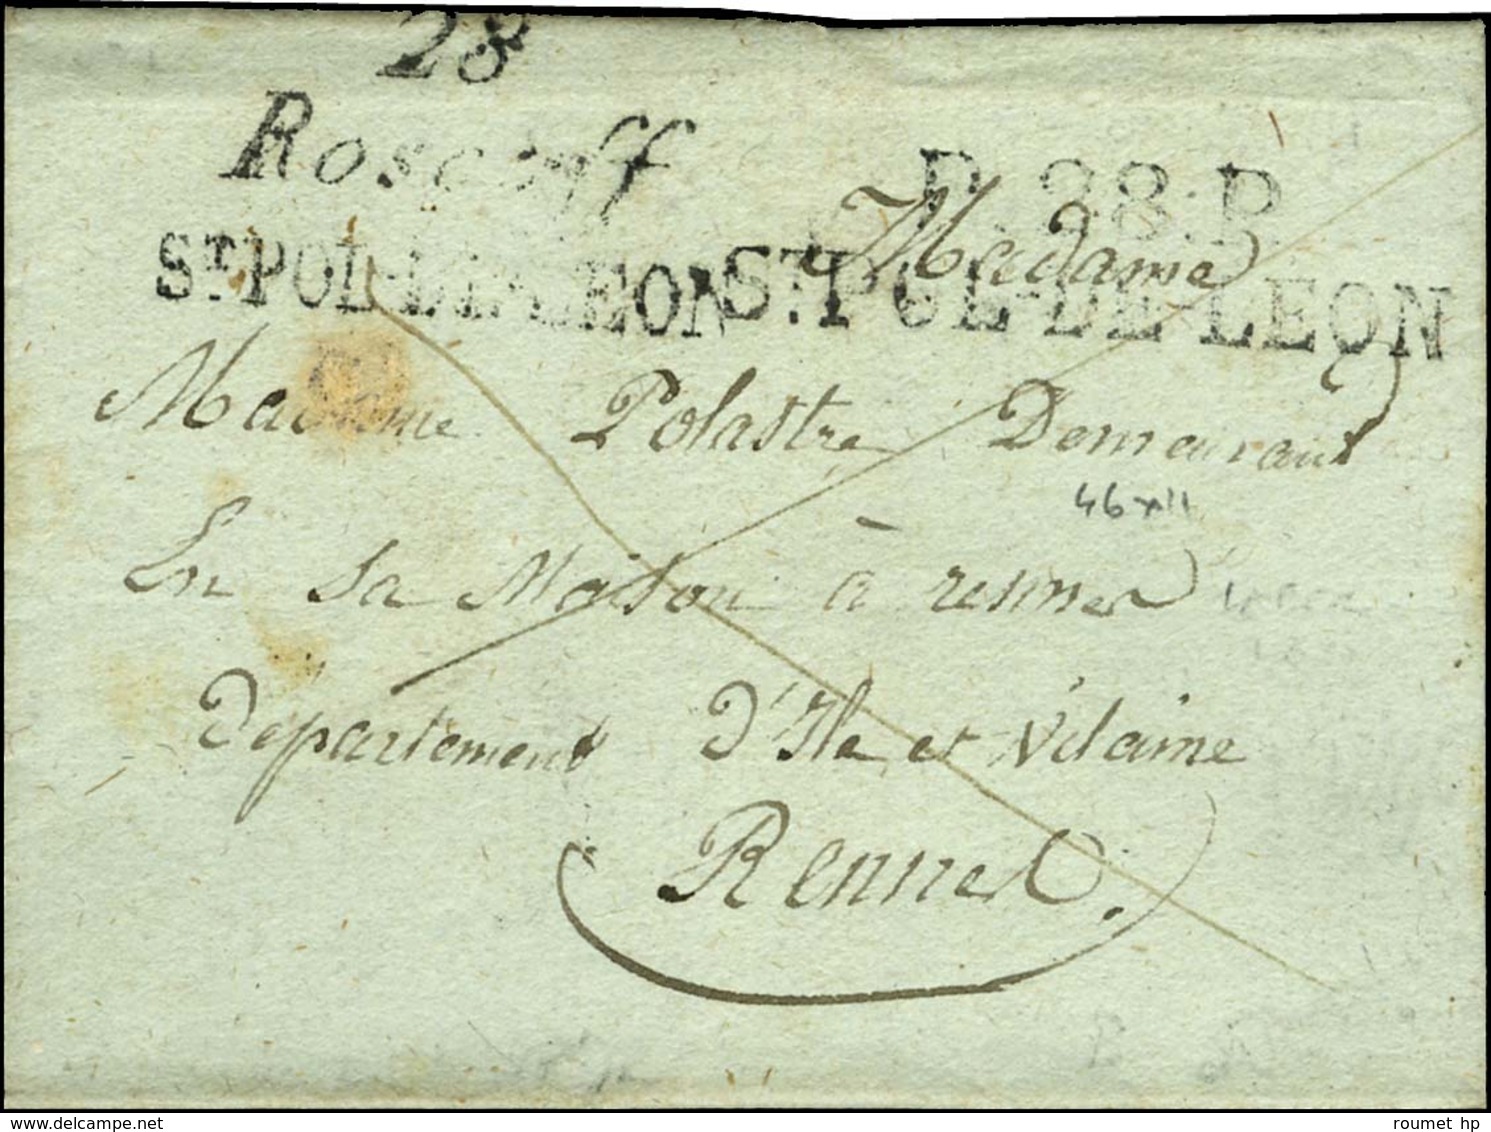 28
Roscoff
P. 28. P.
ST. POL-DE-LEON
ST. POL-DE-LEON
Madame
Madame Polastre Demeurant
46 xll
En Sa Maison à rennes
Departement d'Ile et Vilaine
Rennes.
delcampe.net
roumet hp